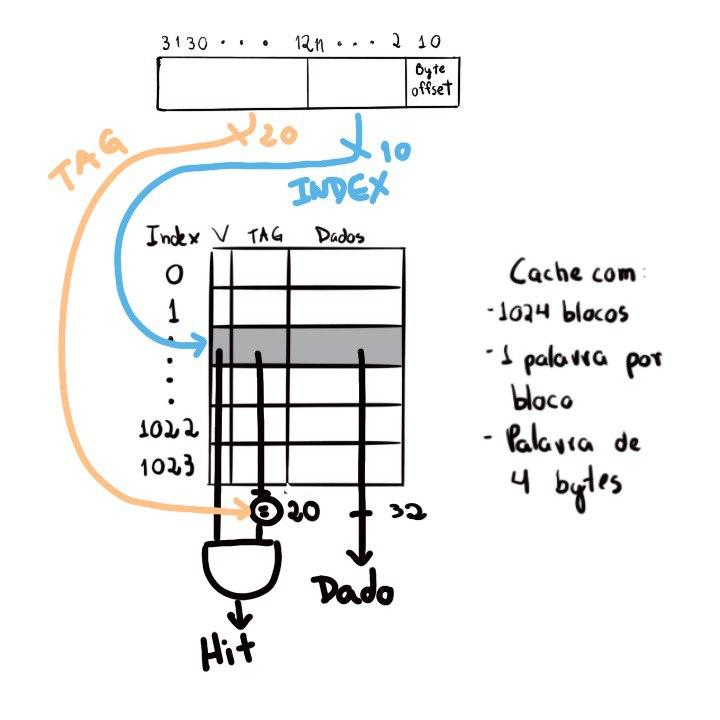 3130 · · · · 12 11 · · · 2 10
Byte
offset
20
TAG
10
INDEX
Index V TAG Dados
0
1
·
·
·
·
1022
1023
= 20
32
Dado
Hit
Cache com:
- 1024 blocos
- 1 palavra por
bloco
- Palavra de
4 bytes